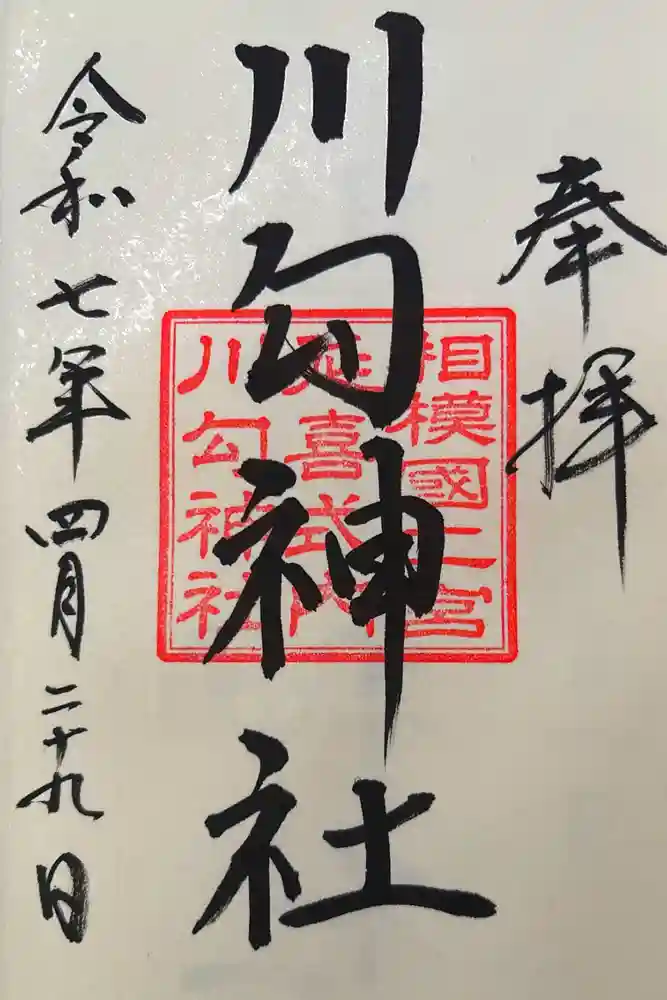 奉拝
相模國二宮
延喜式内
川勾神社
川勾神社
令和七年四月二十九日